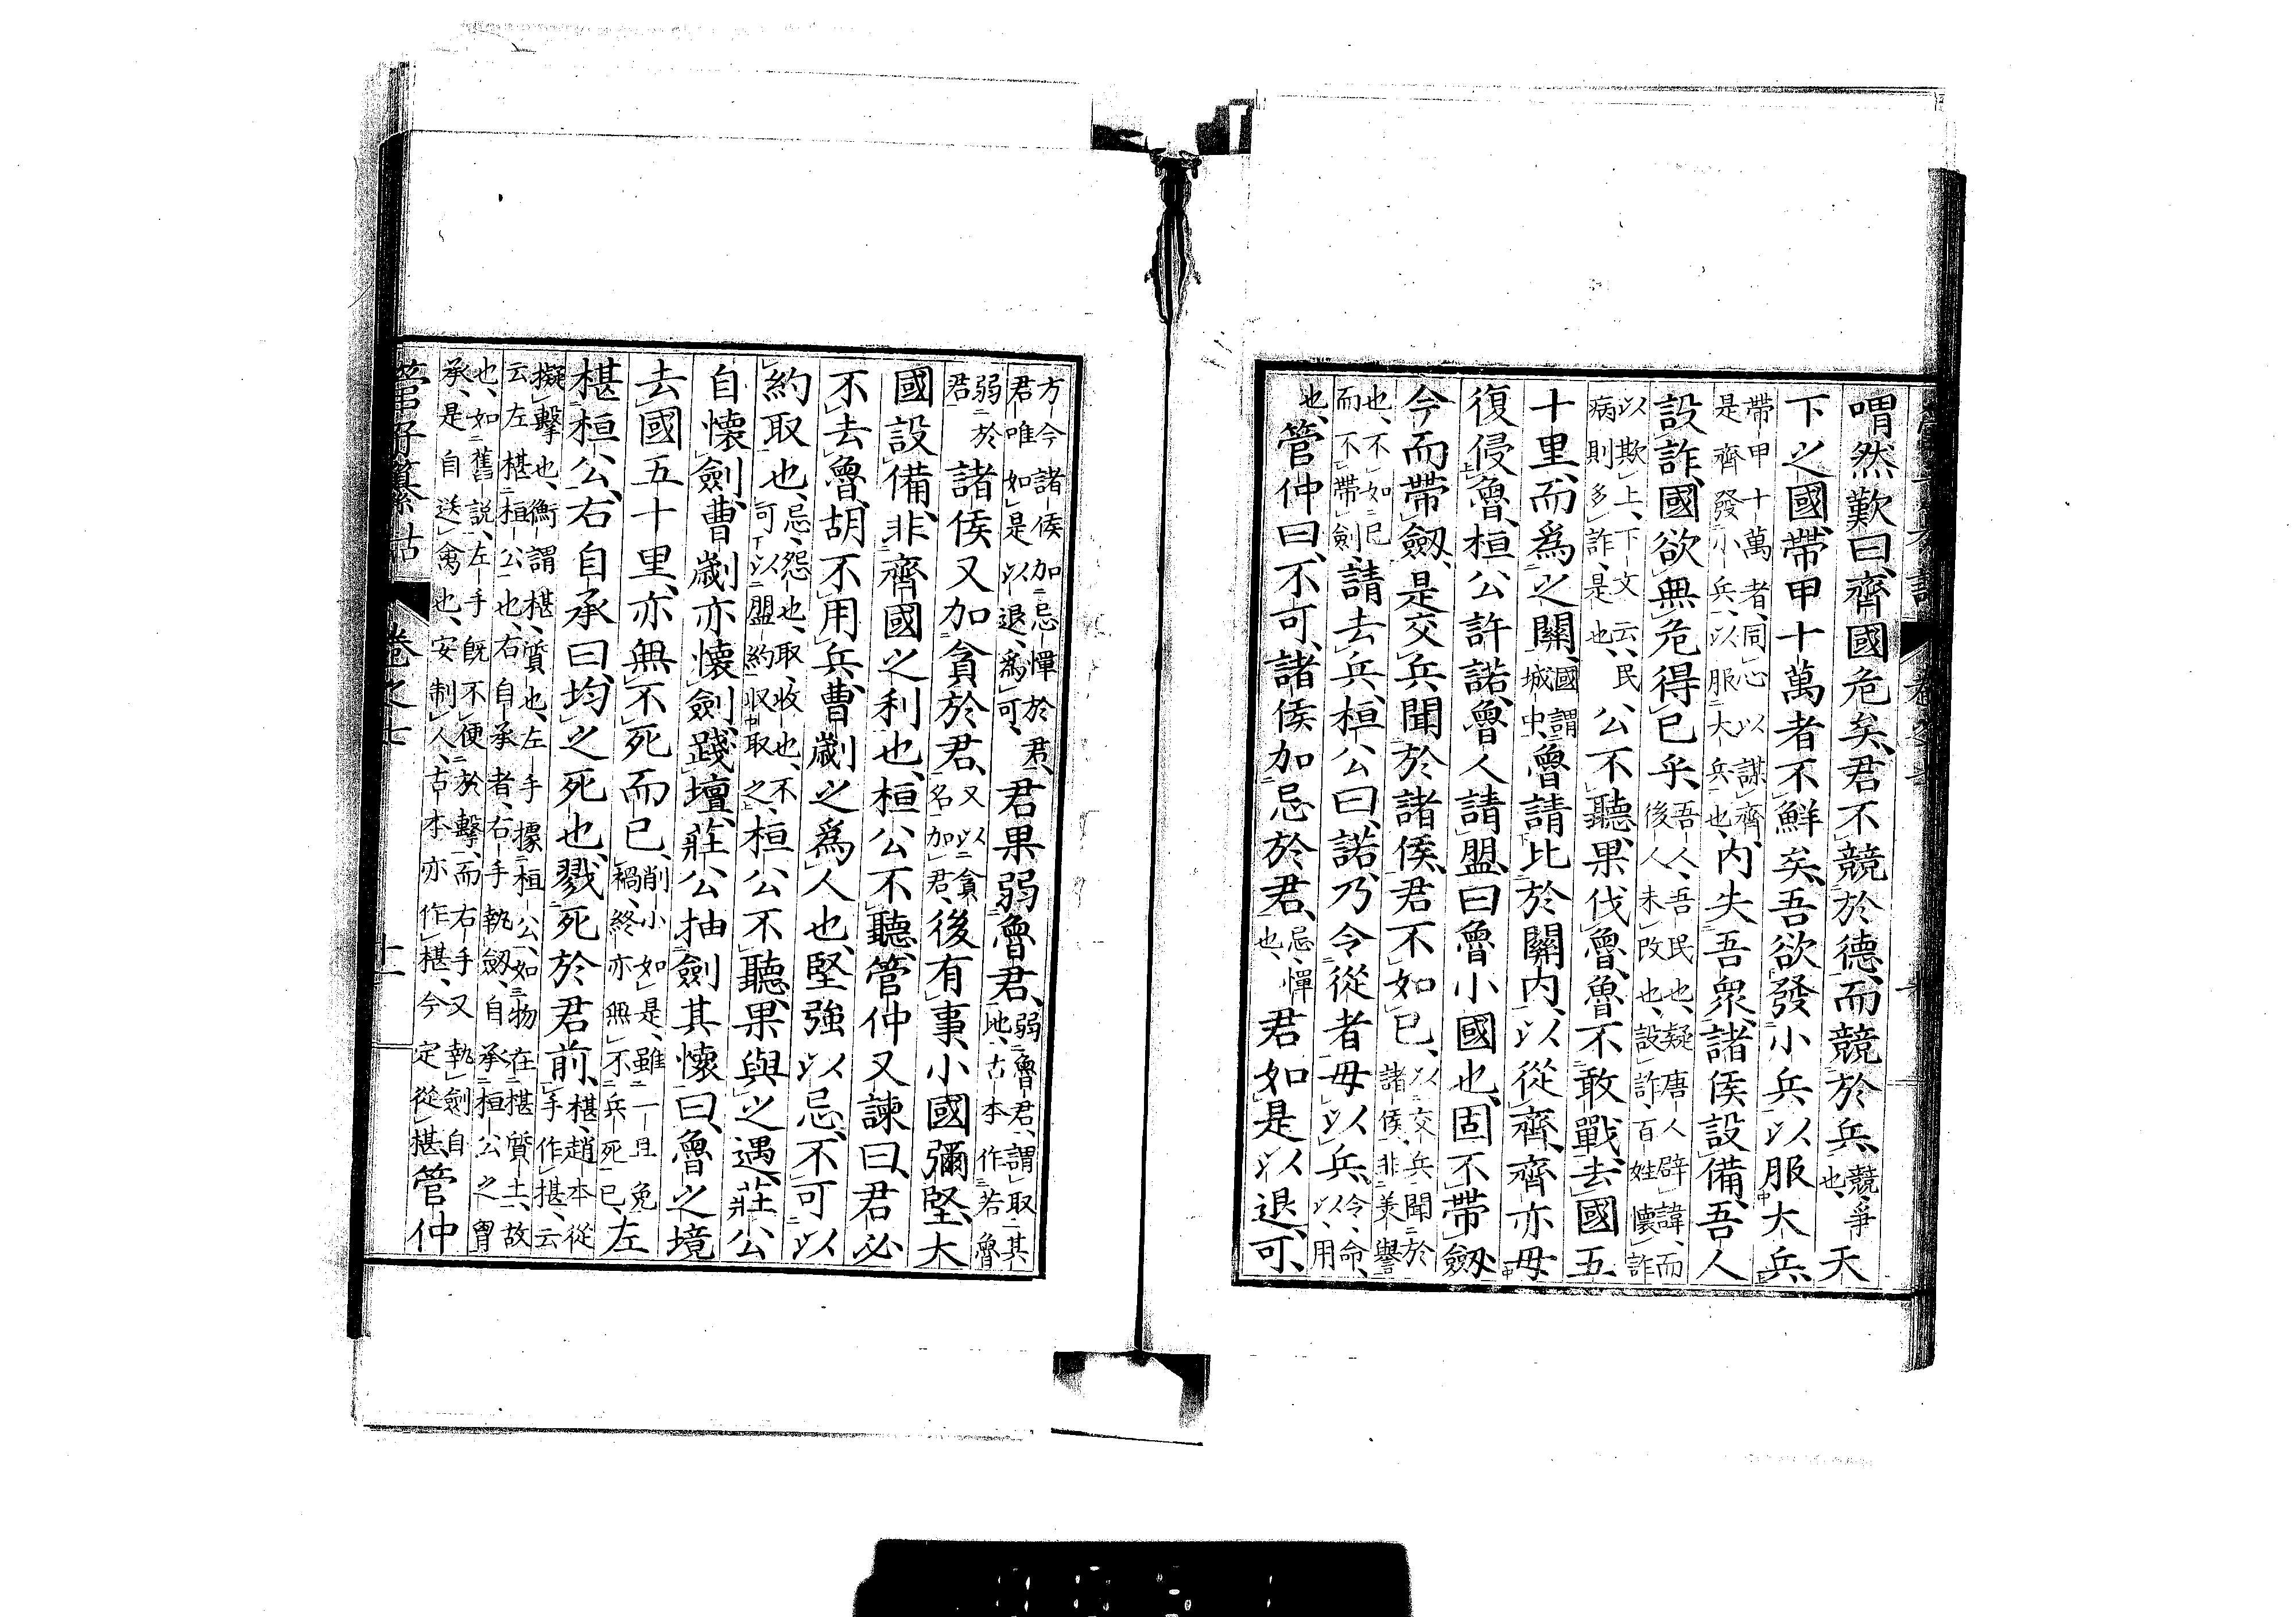 喟然歎曰、齊國危矣、君不競於德、而競於兵、競、爭也、天
下之國、帶甲十萬者不鮮矣、吾欲發小兵以服大兵、
帶甲十萬者、同心以謀齊、是齊發小兵、以服大兵也、內失吾衆、諸侯設備、吾人
設詐、國欲無危得已乎、吾人、吾民也、疑唐人辟諱、而後人未改也、設詐、百姓懷詐
以欺上、下文云、民病則多詐、是也、公不聽、果伐魯、魯不敢戰、去國五
十里、而爲之關、國謂城中、魯請比於關內、以從齊、齊亦毋
復侵魯、桓公許諾、魯人請盟曰、魯小國也、固不帶劔、
今而帶劔、是交兵聞於諸侯、君不如已、以交兵聞於諸侯、非美譽
也、不如已而不帶劍、請去兵、桓公曰、諾、乃令從者毋以兵、令、命、以、用
也、管仲曰、不可、諸侯加忌於君、忌、憚也、君如是以退、可、
方今諸侯加忌憚於君、君唯如是以退爲可、君果弱魯君、弱魯君、謂取其地、古本作若魯
君弱於君、諸侯又加貪於君、又以貪名加君、後有事、小國彌堅、大
國設備、非齊國之利也、桓公不聽、管仲又諫曰、君必
不去魯、胡不用兵、曹劌之爲人也、堅強以忌、不可以
約取也、忌、怨也、取、收也、不可以盟約收取之、桓公不聽、果與之遇、莊公
自懷劍、曹劌亦懷劍、踐壇、莊公抽劍其懷曰、魯之境
去國五十里、亦無不死而已、削小如是、雖一旦免禍、終亦無不兵死已、左
椹桓公、右自承曰、均之死也、戮死於君前、椹、趙本從手作揕、云
擬擊也、衡謂椹、質也、左手據桓公、如物在椹質上、故云左椹桓公也、右自承者、右手執劔、自承桓公之胷
也、如舊說、左手既不便於擊、而右手又執劍自承、是自送禽也、安制人、古本亦作椹、今定從椹、管仲
管子纂詁 卷之七 十一